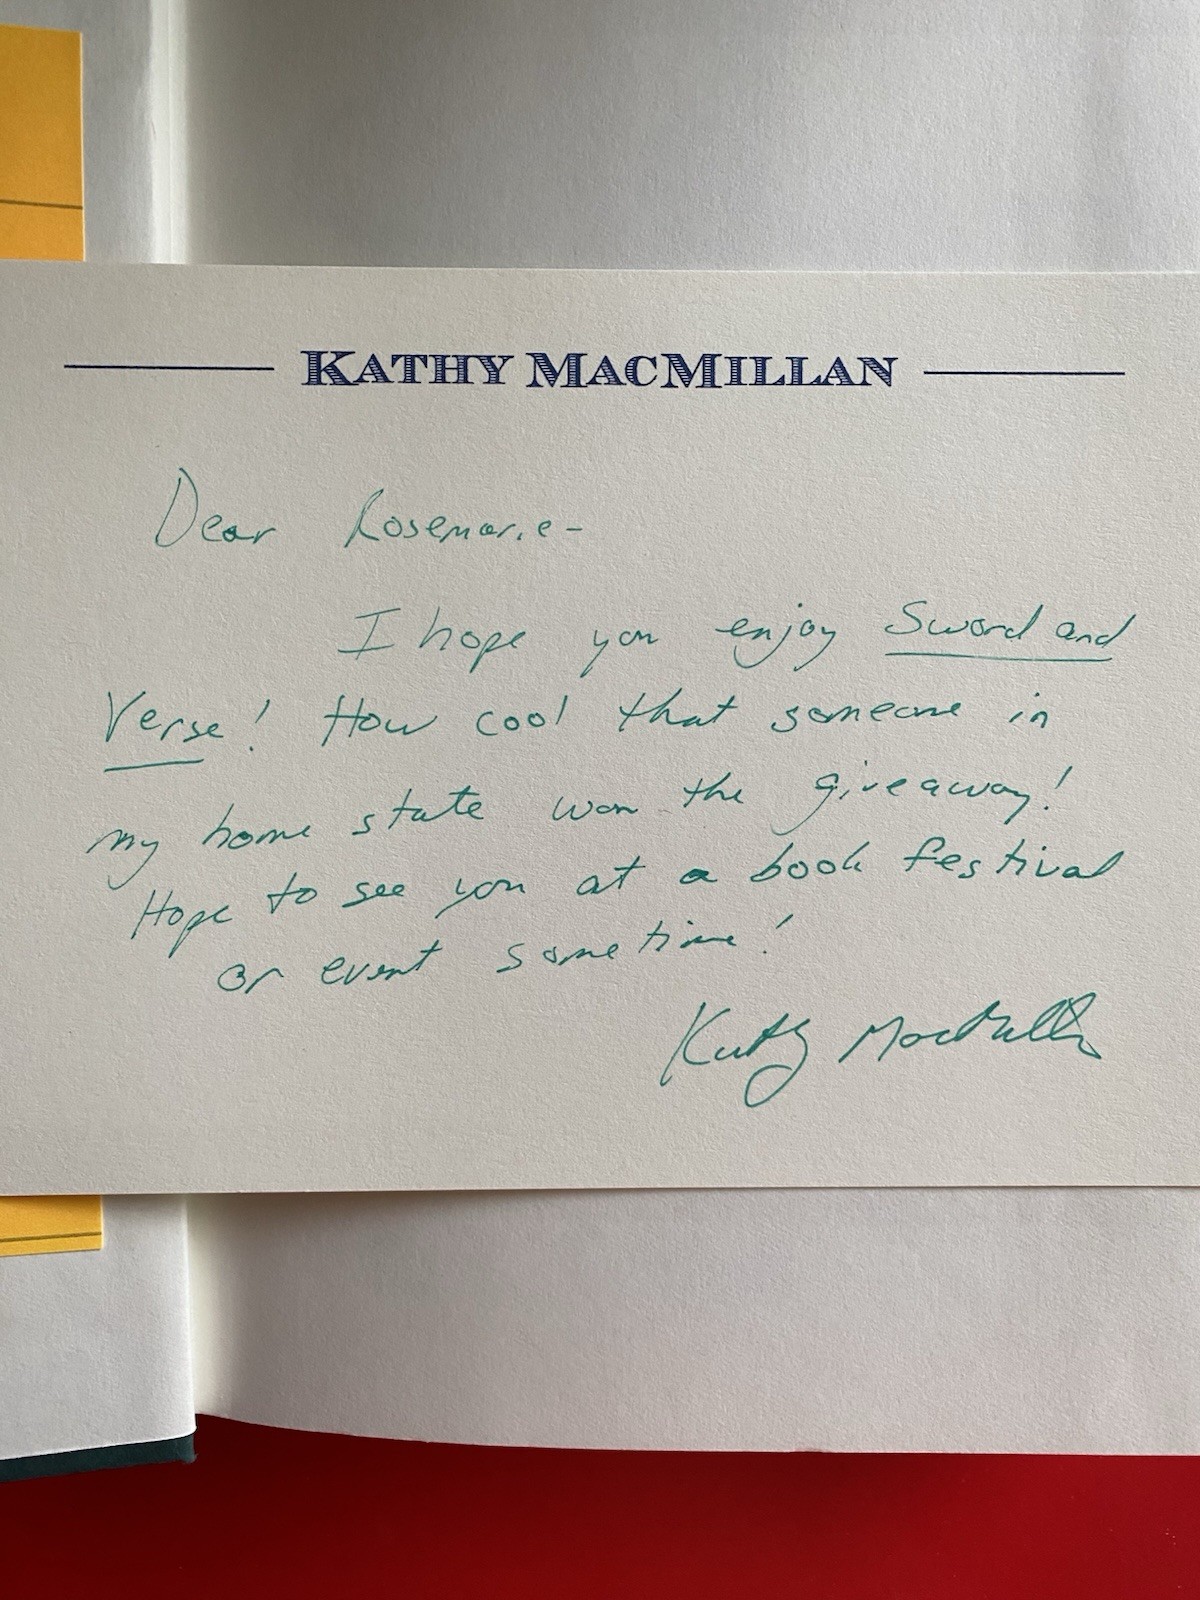 KATHY MACMILLAN
Dear Rosemarie-
I hope you enjoy Sword and
Verse! How cool that someone in
my home state won the giveaway!
Hope to see you at a book festival
or event sometime!
Kathy MacMillan